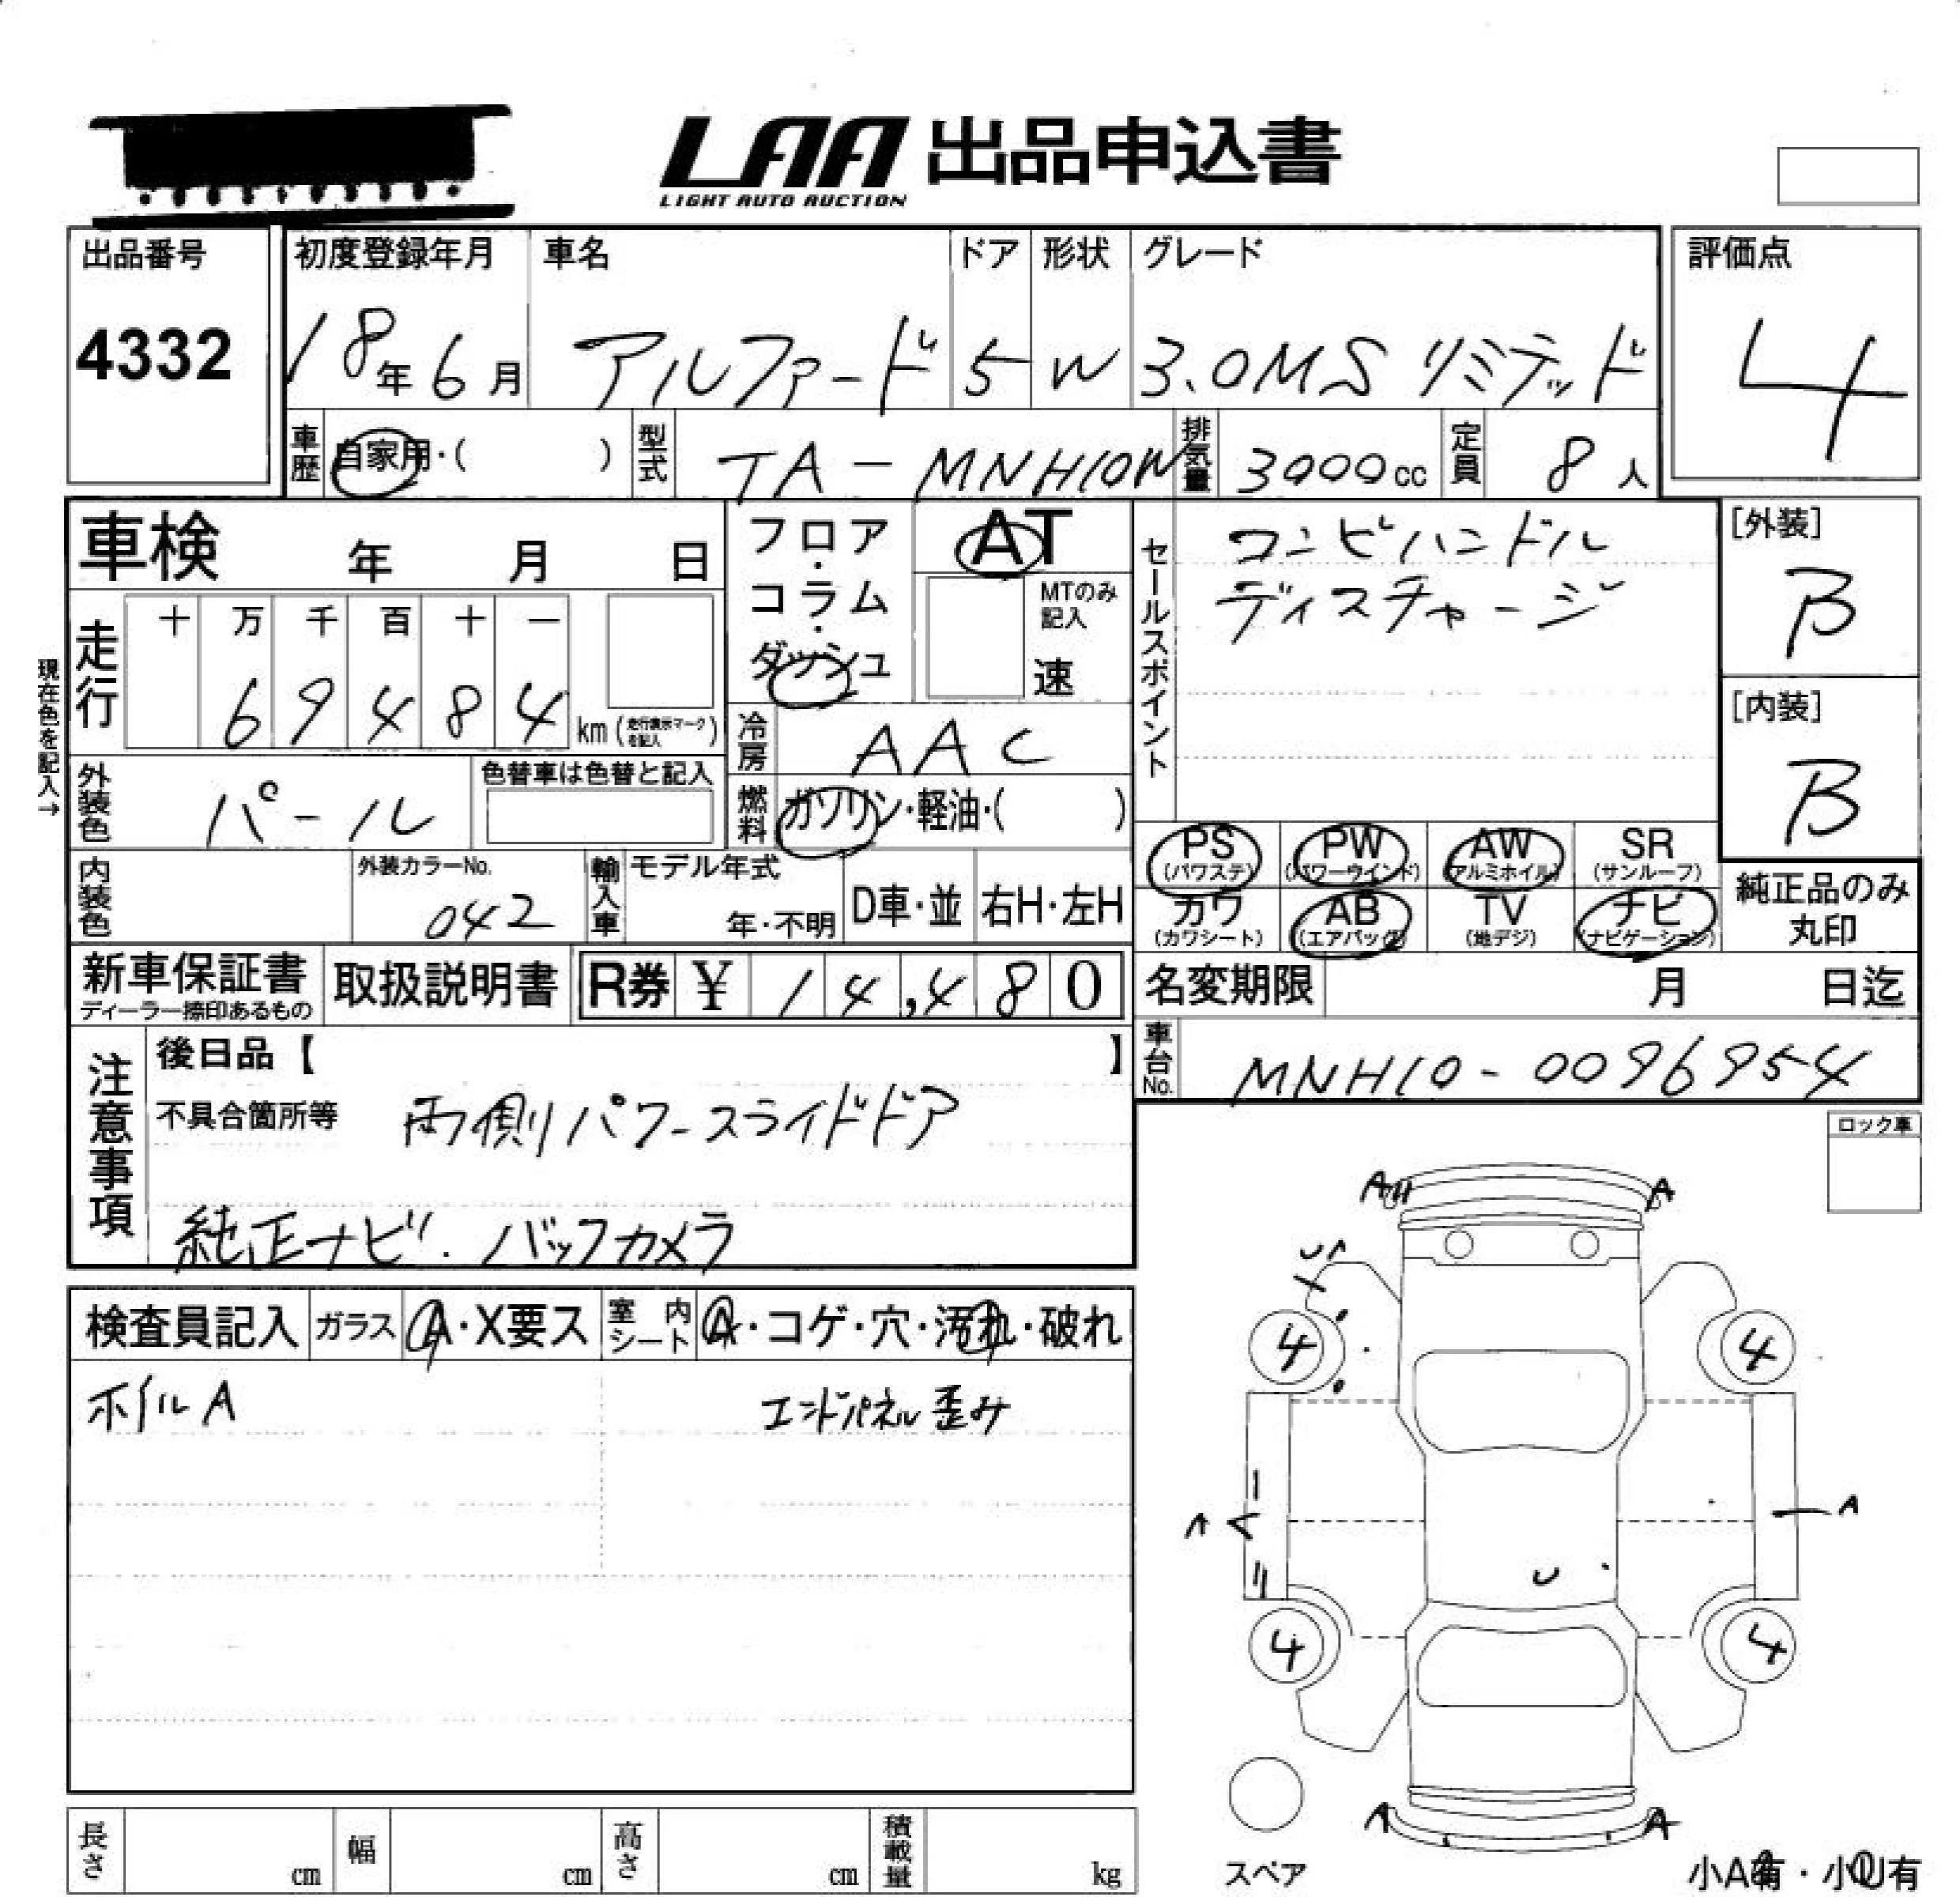 LAA 出品申込書
LIGHT AUTO AUCTION
出品番号 初度登録年月 車名 ドア 形状 グレード 評価点
4332 18年6月 アルファード 5 W 3.0MS リミテッド 4
車歴 自家用・( ) 型式 TA-MNH10W 排気量 3000cc 定員 8人
車検 年 月 日
フロア・コラム・ダッシュ
AT
MTのみ記入
速
セールスポイント
コンビハンドル
ディスチャージ
[外装]
B
[内装]
B
現在色を記入→
走行
十 万 千 百 十 一
6 9 4 8 4 km (走行表示マークを記入)
冷房 AAC
外装色 パール
色替車は色替と記入
燃料 ガソリン・軽油・( )
PS (パワステ) PW (パワーウインド) AW (アルミホイル) SR (サンルーフ)
カワ (カワシート) AB (エアバッグ) TV (地デジ) ナビ (ナビゲーション)
純正品のみ丸印
内装色
外装カラーNo.
042
輸入車 モデル年式
年・不明 D車・並 右H・左H
新車保証書
ディーラー捺印あるもの
取扱説明書
R券 ¥ 14,480
名変期限 月 日迄
車台No. MNH10-0096954
注意事項
後日品【 】
不具合箇所等 両側パワースライドドア
純正ナビ. バックカメラ
ロック車
検査員記入 ガラス A・X要ス 室内シート A・コゲ・穴・汚れ・破れ
ホイルA エンドパネル歪み
A A
U A
4 4
A A
U
4 4
A A
スペア
小A有・小U有
長さ cm 幅 cm 高さ cm 積載量 kg